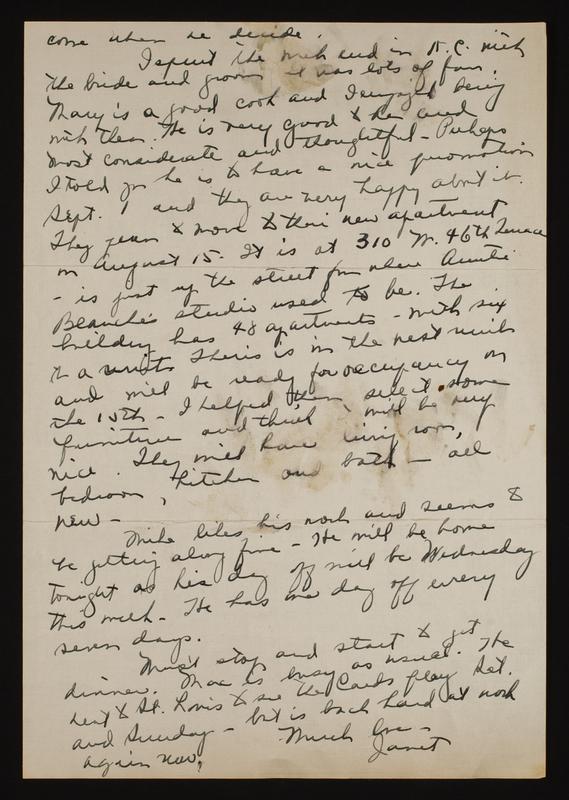 come when he decide.
I spent the week end in K.C. with
the bride and groom it was lots of fun.
Mary is a good cook and I enjoyed being
with them. He is very good to her and
most considerate and thoughtful - Perhaps
I told you he is to have a nice promotion
Sept. 1 and they are very happy about it.
They plan to move to their new apartment
on August 15. It is at 310 W. 46th Terrace
- is just up the street from where Auntie
Blanche's studio used to be. The
building has 48 apartments - with six
to a unit. Theirs is in the next unit
and will be ready for occupancy on
the 15th - I helped them select some
furniture and think it will be very
nice. They will have living room,
bedroom, kitchen and bath - all
new -
Mike likes his work and seems to
be getting along fine - He will be home
tonight as his day off will be Wednesday
this week - He has one day off every
seven days.
Must stop and start to get
dinner. Mac is busy as usual. He
went to St. Louis to see the Cards play Sat.
and Sunday - but is back hard at work
again now,
Much love -
Janet